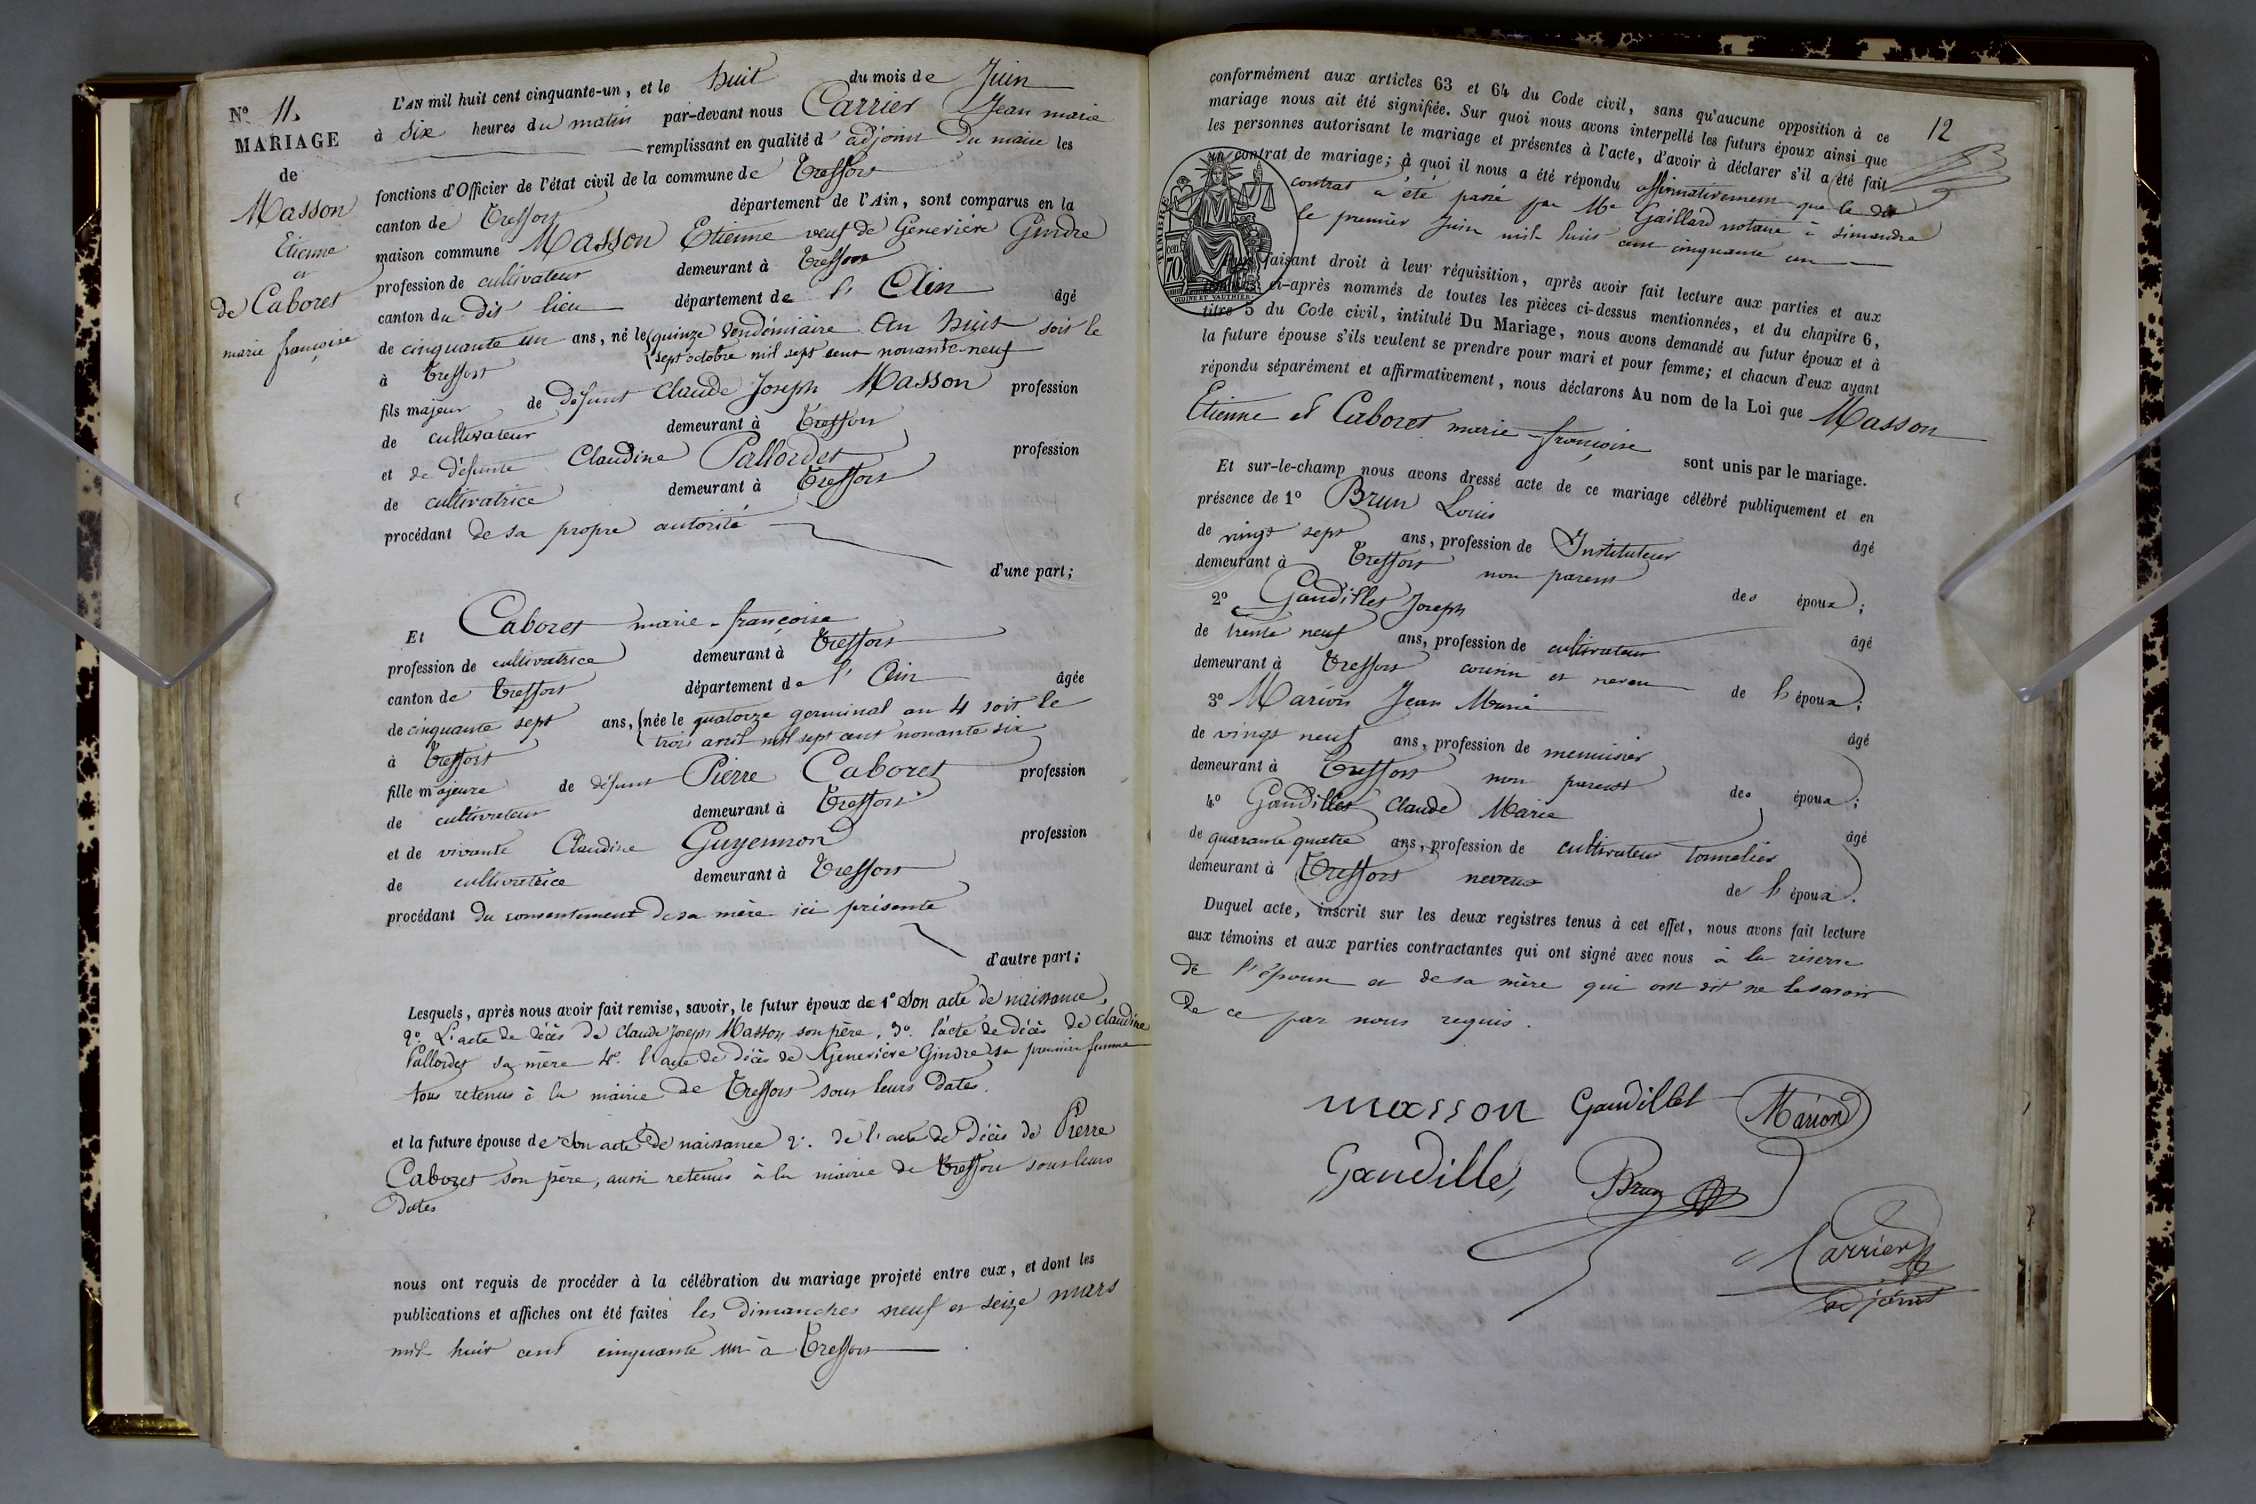 N° 11.
MARIAGE
de
Masson
Etienne
et
de Caboret
marie françoise
L'AN mil huit cent cinquante-un, et le huit du mois de Juin
à six heures du matin par-devant nous Carrier Jean marie
remplissant en qualité d'adjoint du maire les
fonctions d'Officier de l'état civil de la commune de Treffort
canton de Treffort département de l'Ain, sont comparus en la
maison commune Masson Etienne veuf de Geneviève Gindre
profession de cultivateur demeurant à Treffort
canton du dit lieu département de l'Ain âgé
de cinquante un ans, né le quinze vendémiaire an huit soit le
sept octobre mil sept cent nonante-neuf
à Treffort
fils majeur de défunt Claude Joseph Masson profession
de cultivateur demeurant à Treffort
et de défunte Claudine Pallordet profession
de cultivatrice demeurant à Treffort
procédant de sa propre autorité
d'une part;
Et Caboret marie-françoise
profession de cultivatrice demeurant à Treffort
canton de Treffort département de l'Ain âgée
de cinquante sept ans, née le quatorze germinal an 4 soit le
trois avril mil sept cent nonante six
à Treffort
fille majeure de défunt Pierre Caboret profession
de cultivateur demeurant à Treffort
et de vivante Claudine Guyennon profession
de cultivatrice demeurant à Treffort
procédant du consentement de sa mère ici présente
d'autre part;
Lesquels, après nous avoir fait remise, savoir, le futur époux de 1° Son acte de naissance,
2° L'acte de décès de Claude Joseph Masson son père, 3° l'acte de décès de Claudine
Pallordet sa mère 4° l'acte de décès de Geneviève Gindre sa première femme
tous retenus à la mairie de Treffort sous leurs dates.
et la future épouse de son acte de naissance 2° de l'acte de décès de Pierre
Caboret son père, aussi retenus à la mairie de Treffort sous leurs
dates
nous ont requis de procéder à la célébration du mariage projeté entre eux, et dont les
publications et affiches ont été faites les dimanches neuf et seize mars
mil huit cent cinquante un à Treffort
12
conformément aux articles 63 et 64 du Code civil, sans qu'aucune opposition à ce
mariage nous ait été signifiée. Sur quoi nous avons interpellé les futurs époux ainsi que
les personnes autorisant le mariage et présentes à l'acte, d'avoir à déclarer s'il a été fait
un contrat de mariage; à quoi il nous a été répondu affirmativement que le dit
contrat a été passé par Me Gaillard notaire à Simandre
le premier Juin mil huit cent cinquante un
TIMBRE
cen
70
OUDINÉ ET VAUTHIER
faisant droit à leur réquisition, après avoir fait lecture aux parties et aux
ci-après nommés de toutes les pièces ci-dessus mentionnées, et du chapitre 6,
titre 5 du Code civil, intitulé Du Mariage, nous avons demandé au futur époux et à
la future épouse s'ils veulent se prendre pour mari et pour femme; et chacun d'eux ayant
répondu séparément et affirmativement, nous déclarons Au nom de la Loi que Masson
Etienne et Caboret marie-françoise
sont unis par le mariage.
Et sur-le-champ nous avons dressé acte de ce mariage célébré publiquement et en
présence de 1° Brun Louis
de vingt sept ans, profession de Instituteur âgé
demeurant à Treffort non parent des époux;
2° Gaudillet Joseph
de trente neuf ans, profession de cultivateur âgé
demeurant à Treffort cousin et neveu de l'époux;
3° Marion Jean Marie
de vingt neuf ans, profession de menuisier âgé
demeurant à Treffort non parent des époux;
4° Gaudillet Claude Marie
de quarante quatre ans, profession de cultivateur tonnelier âgé
demeurant à Treffort neveu de l'époux.
Duquel acte, inscrit sur les deux registres tenus à cet effet, nous avons fait lecture
aux témoins et aux parties contractantes qui ont signé avec nous à la réserve
de l'épouse et de sa mère qui ont dit ne le savoir
de ce par nous requis.
masson Gaudillet Marion
Gaudille Brun
Carrier
adjoint